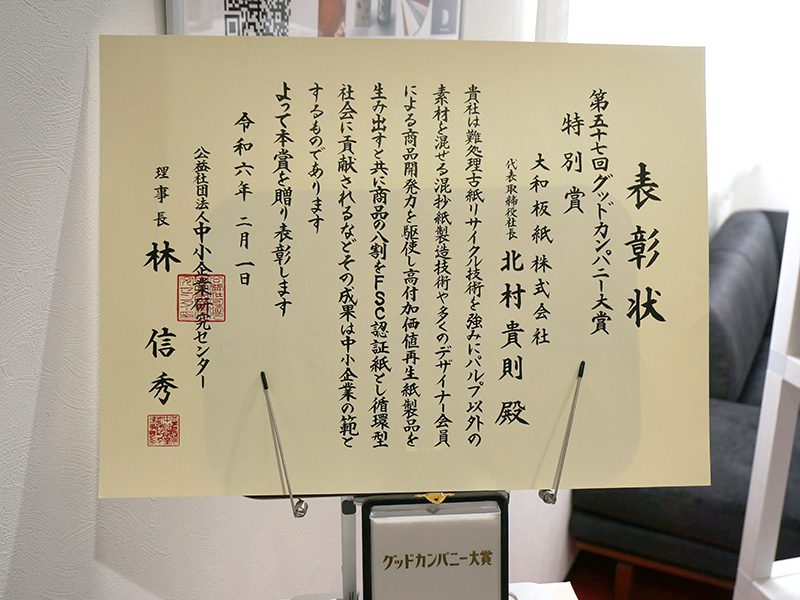 表彰状
第五十七回グッドカンパニー大賞
特別賞
大和板紙株式会社
代表取締役社長 北村貴則 殿
貴社は難処理古紙リサイクル技術を強みにパルプ以外の
素材を混ぜる混抄紙製造技術や多くのデザイナー会員
による商品開発力を駆使し高付加価値再生紙製品を
生み出すと共に商品の八割をFSC認証紙とし循環型
社会に貢献されるなどその成果は中小企業の範と
するものであります
よって本賞を贈り表彰します
令和六年 二月一日
公益社団法人中小企業研究センター
理事長 林 信秀
グッドカンパニー大賞